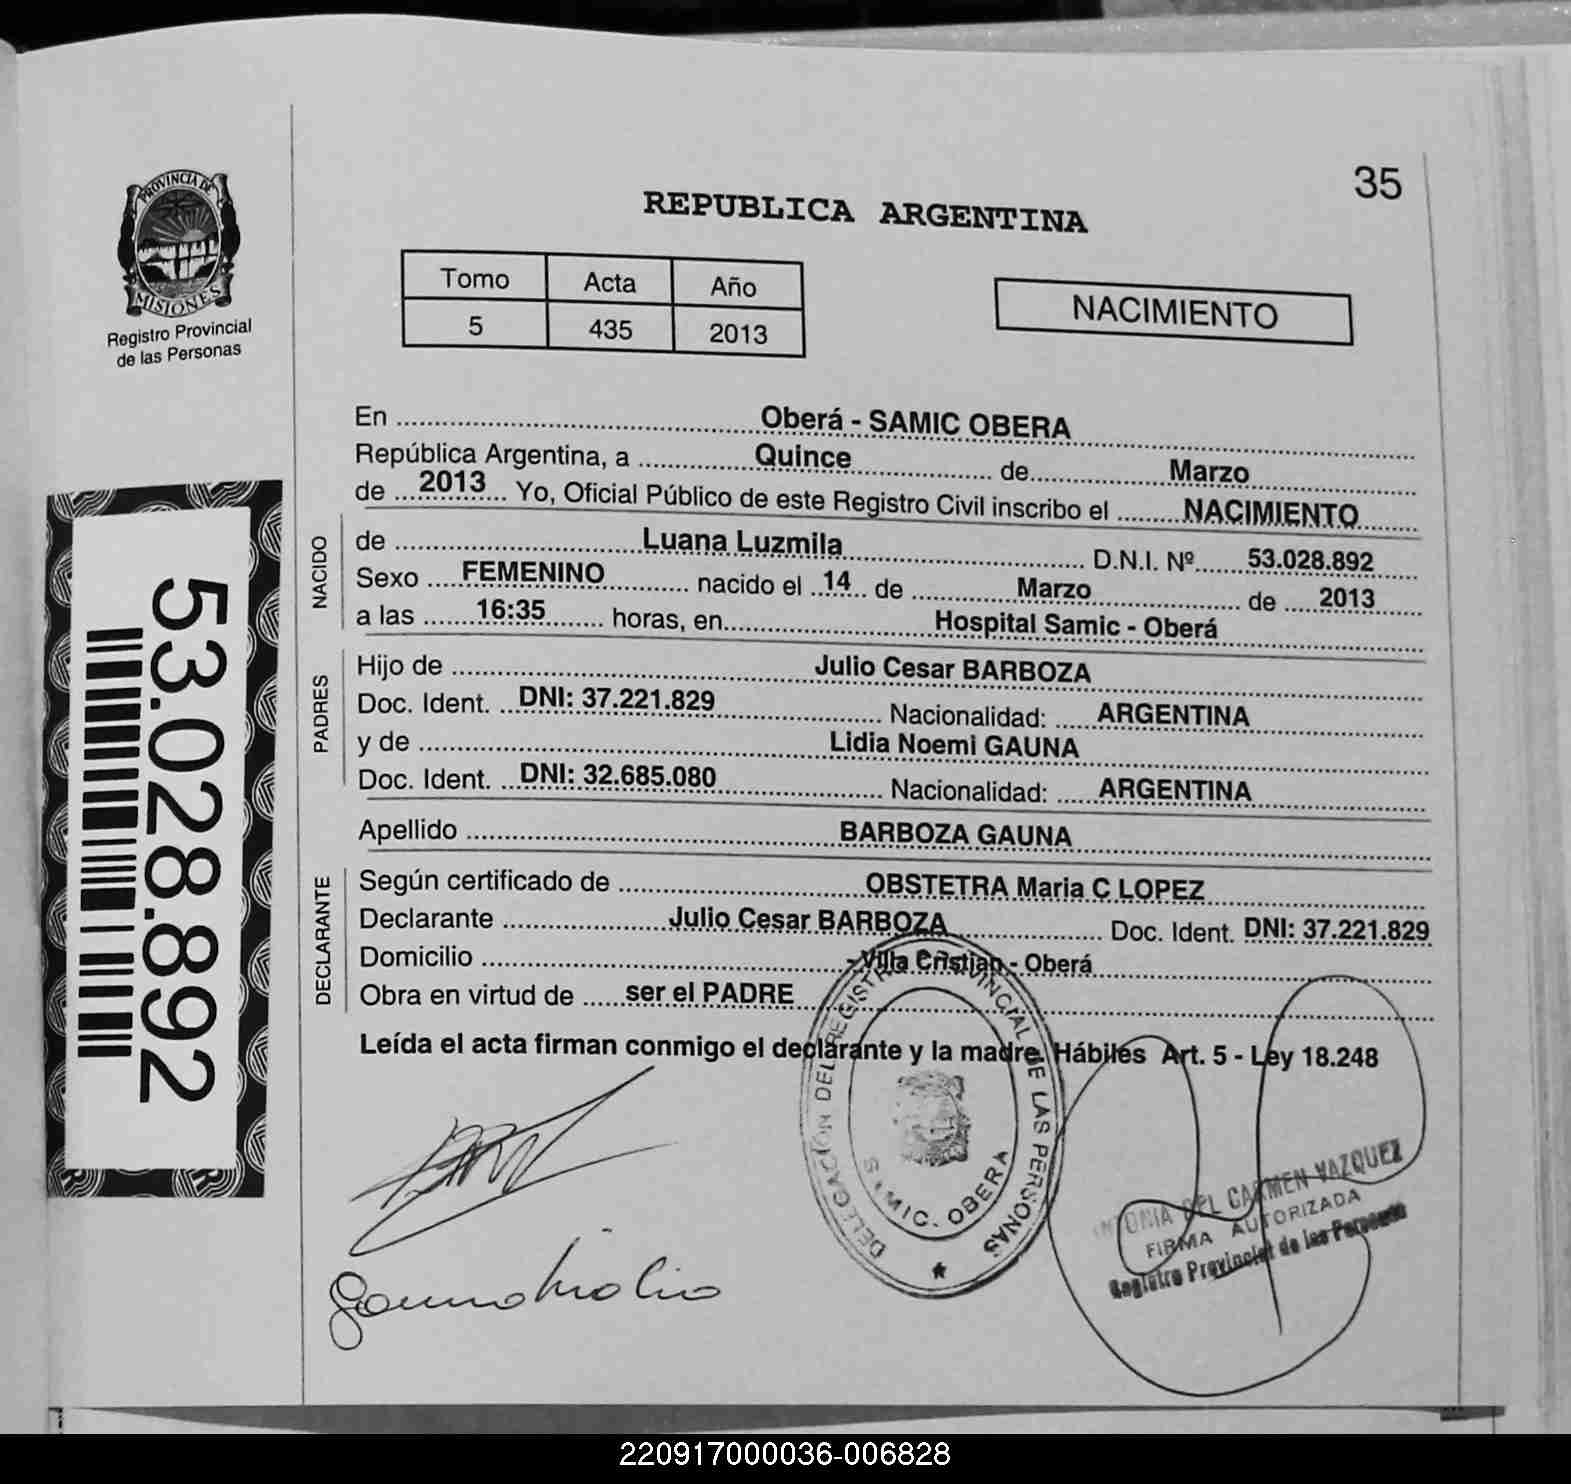 35
REPUBLICA ARGENTINA
PROVINCIA DE
MISIONES
Registro Provincial
de las Personas
Tomo Acta Año
5 435 2013
NACIMIENTO
En Oberá - SAMIC OBERA
República Argentina, a Quince de Marzo
de 2013 Yo, Oficial Público de este Registro Civil inscribo el NACIMIENTO
NACIDO
de Luana Luzmila D.N.I. Nº 53.028.892
Sexo FEMENINO nacido el 14 de Marzo de 2013
a las 16:35 horas, en Hospital Samic - Oberá
PADRES
Hijo de Julio Cesar BARBOZA
Doc. Ident. DNI: 37.221.829 Nacionalidad: ARGENTINA
y de Lidia Noemi GAUNA
Doc. Ident. DNI: 32.685.080 Nacionalidad: ARGENTINA
Apellido BARBOZA GAUNA
DECLARANTE
Según certificado de OBSTETRA Maria C LOPEZ
Declarante Julio Cesar BARBOZA Doc. Ident. DNI: 37.221.829
Domicilio - Villa Cristian - Oberá
Obra en virtud de ser el PADRE
Leída el acta firman conmigo el declarante y la madre. Hábiles Art. 5 - Ley 18.248
53.028.892
DELEGACIÓN DEL REGISTRO PROVINCIAL DE LAS PERSONAS
SAMIC. OBERA
DEL CARMEN VAZQUEZ
FIRMA AUTORIZADA
Registro Provincial de las Personas
Gauna Lidia
220917000036-006828